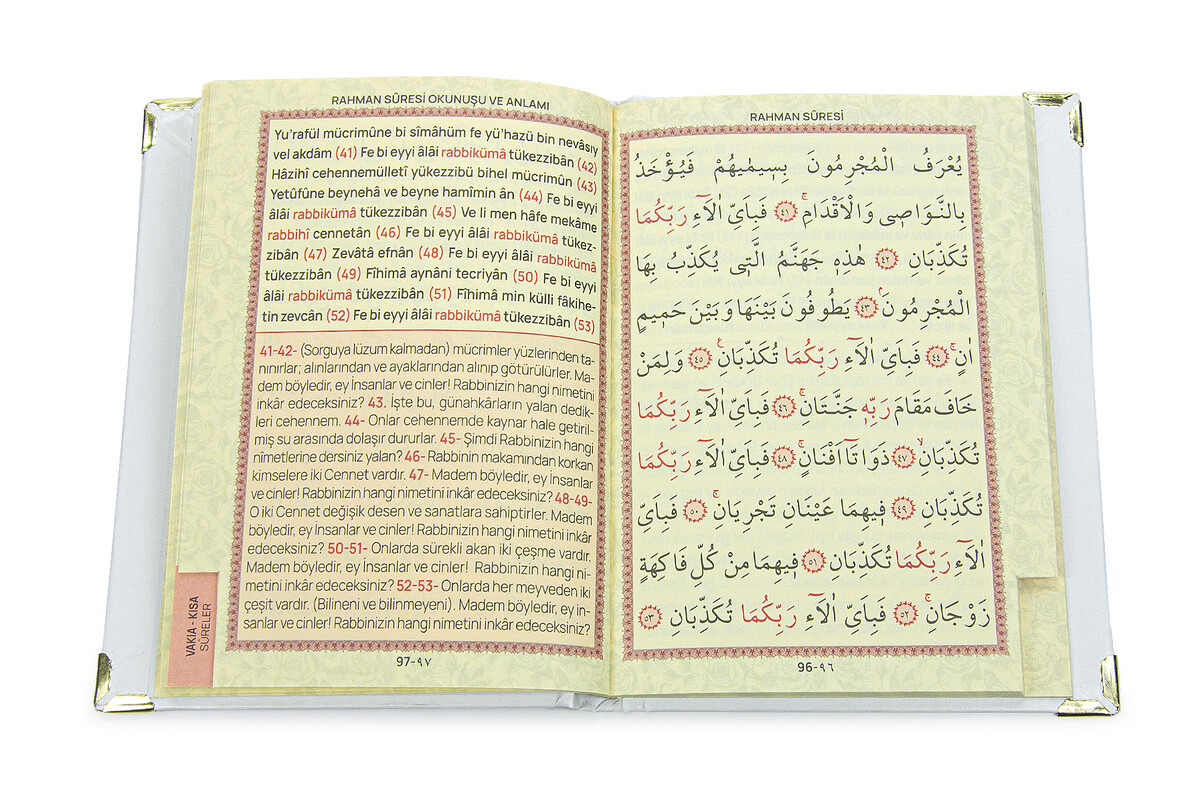 RAHMAN SÛRESİ OKUNUŞU VE ANLAMI
Yu'rafül mücrimûne bi sîmâhüm fe yü'hazü bin nevâsıy
vel akdâm (41) Fe bi eyyi âlâi rabbikümâ tükezzibân (42)
Hâzihî cehennemülletî yükezzibü bihel mücrimûn (43)
Yetûfûne beynehâ ve beyne hamîmin ân (44) Fe bi eyyi
âlâi rabbikümâ tükezzibân (45) Ve li men hâfe mekâme
rabbihî cennetân (46) Fe bi eyyi âlâi rabbikümâ tükez-
zibân (47) Zevâtâ efnân (48) Fe bi eyyi âlâi rabbikümâ
tükezzibân (49) Fîhimâ aynâni tecriyân (50) Fe bi eyyi
âlâi rabbikümâ tükezzibân (51) Fîhimâ min külli fâkihe-
tin zevcân (52) Fe bi eyyi âlâi rabbikümâ tükezzibân (53)
41-42- (Sorguya lüzum kalmadan) mücrimler yüzlerinden ta-
nınırlar; alınlarından ve ayaklarından alınıp götürülürler. Ma-
dem böyledir, ey İnsanlar ve cinler! Rabbinizin hangi nimetini
inkâr edeceksiniz? 43. İşte bu, günahkârların yalan dedik-
leri cehennem. 44- Onlar cehennemde kaynar hale getiril-
miş su arasında dolaşır dururlar. 45- Şimdi Rabbinizin hangi
nîmetlerine dersiniz yalan? 46- Rabbinin makamından korkan
kimselere iki Cennet vardır. 47- Madem böyledir, ey İnsanlar
ve cinler! Rabbinizin hangi nimetini inkâr edeceksiniz? 48-49-
O iki Cennet değişik desen ve sanatlara sahiptirler. Madem
böyledir, ey İnsanlar ve cinler! Rabbinizin hangi nimetini inkâr
edeceksiniz? 50-51- Onlarda sürekli akan iki çeşme vardır.
Madem böyledir, ey İnsanlar ve cinler! Rabbinizin hangi ni-
metini inkâr edeceksiniz? 52-53- Onlarda her meyveden iki
çeşit vardır. (Bilineni ve bilinmeyeni). Madem böyledir, ey in-
sanlar ve cinler! Rabbinizin hangi nimetini inkâr edeceksiniz?
97-٩٧
VAKIA - KISA
SÛRELER
RAHMAN SÛRESİ
يُعْرَفُ الْمُجْرِمُونَ بِسِيمٰيهُمْ فَيُؤْخَذُ
بِالنَّوَاصِي وَالْاَقْدَامِۚ ﴿٤١﴾ فَبِاَيِّ اٰلَٓاءِ رَبِّكُمَا
تُكَذِّبَانِ ﴿٤٢﴾ هٰذِهِ جَهَنَّمُ الَّتِي يُكَذِّبُ بِهَا
الْمُجْرِمُونَۢ ﴿٤٣﴾ يَطُوفُونَ بَيْنَهَا وَبَيْنَ حَمِيمٍ
اٰنٍۚ ﴿٤٤﴾ فَبِاَيِّ اٰلَٓاءِ رَبِّكُمَا تُكَذِّبَانِ۟ ﴿٤٥﴾ وَلِمَنْ
خَافَ مَقَامَ رَبِّهِ جَنَّتَانِۚ ﴿٤٦﴾ فَبِاَيِّ اٰلَٓاءِ رَبِّكُمَا
تُكَذِّبَانِۙ ﴿٤٧﴾ ذَوَاتَٓا اَفْنَانٍۚ ﴿٤٨﴾ فَبِاَيِّ اٰلَٓاءِ رَبِّكُمَا
تُكَذِّبَانِ ﴿٤٩﴾ فِيهِمَا عَيْنَانِ تَجْرِيَانِۚ ﴿٥٠﴾ فَبِاَيِّ
اٰلَٓاءِ رَبِّكُمَا تُكَذِّبَانِ ﴿٥١﴾ فِيهِمَا مِنْ كُلِّ فَاكِهَةٍ
زَوْجَانِۚ ﴿٥٢﴾ فَبِاَيِّ اٰلَٓاءِ رَبِّكُمَا تُكَذِّبَانِ ﴿٥٣﴾
96-٩٦